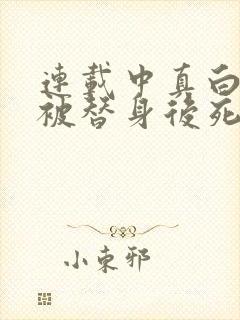 連載中真白
被替身後死
小東邪